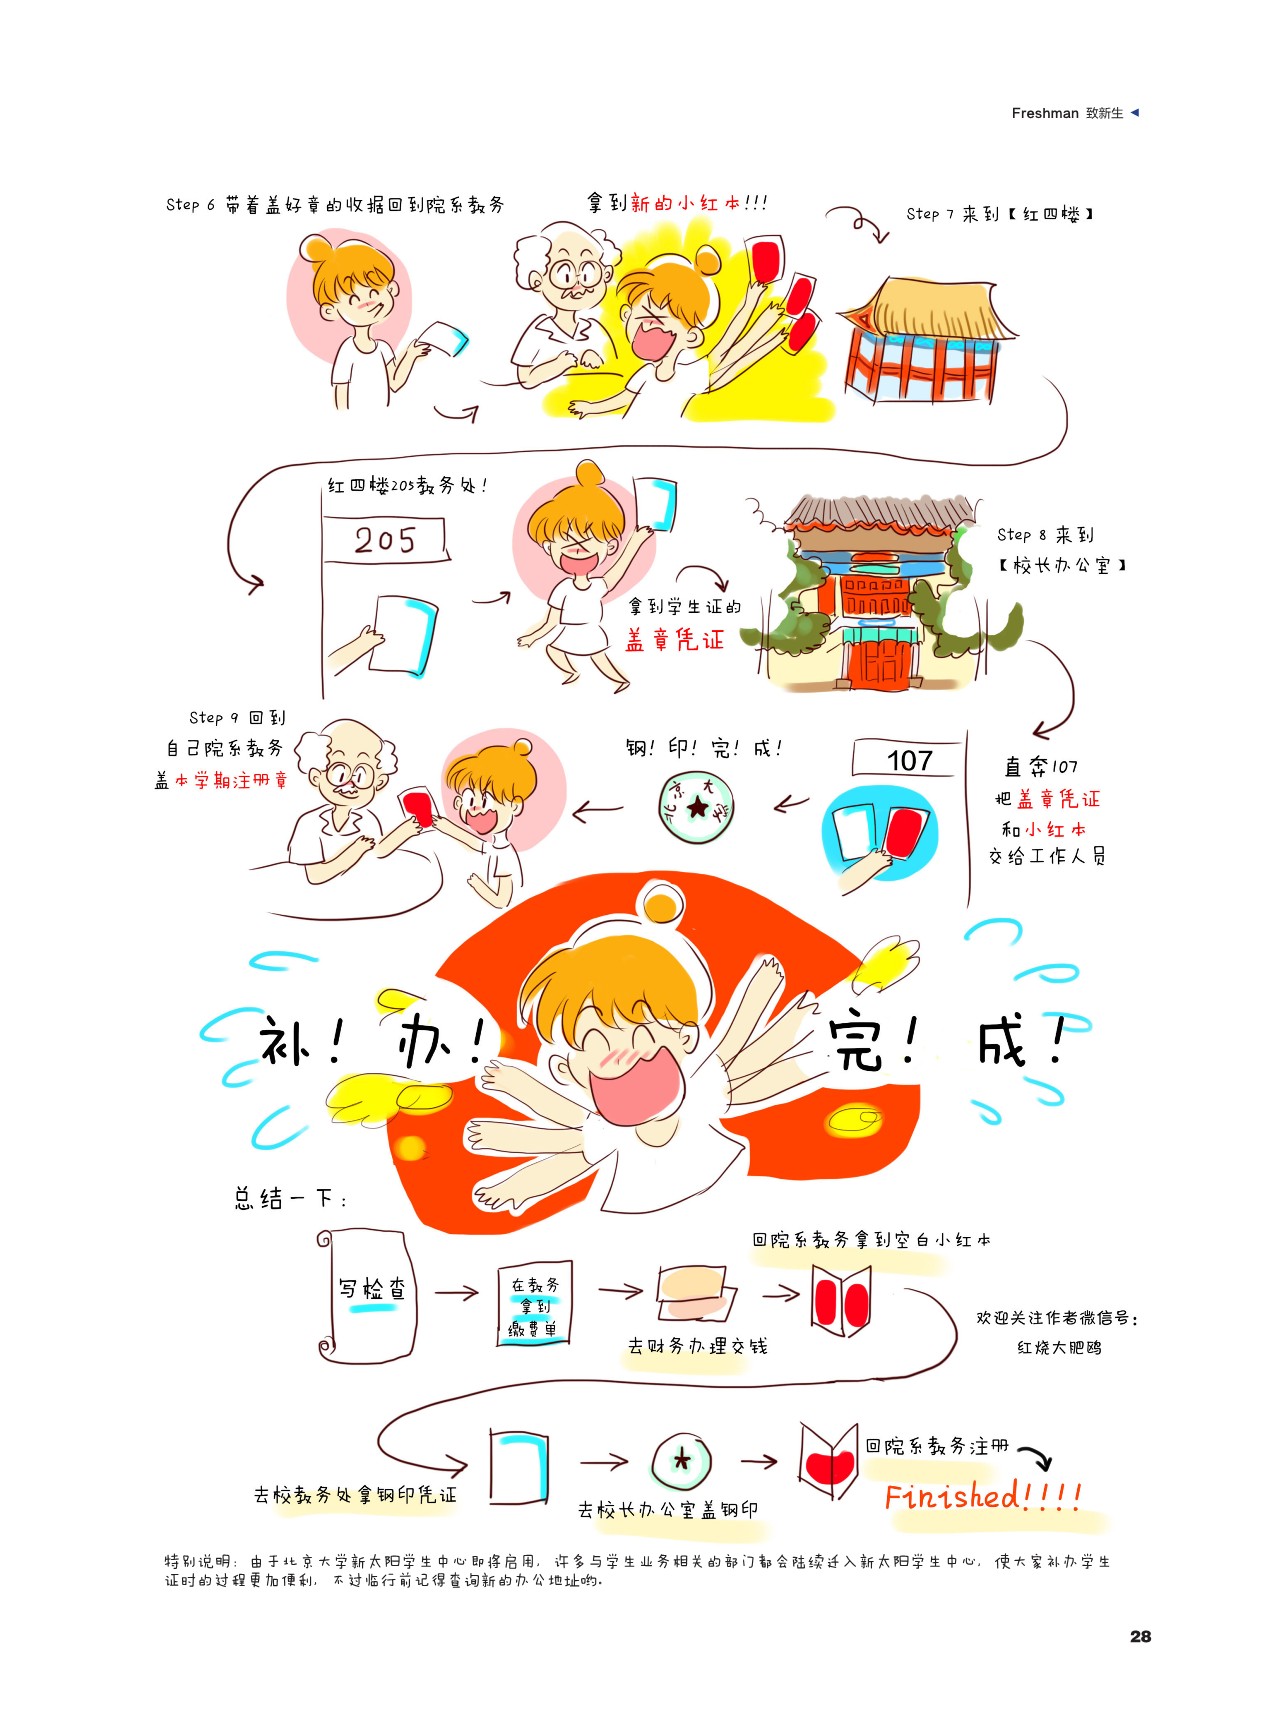 Freshman 致新生
Step 6 带着盖好章的收据回到院系教务
拿到新的小红本!!!
Step 7 来到【红四楼】
红四楼205教务处!
205
拿到学生证的
盖章凭证
Step 8 来到
【校长办公室】
直奔107
把盖章凭证
和小红本
交给工作人员
107
钢! 印! 完! 成!
北京大学
Step 9 回到
自己院系教务
盖本学期注册章
补! 办! 完! 成!
总结一下:
写检查
在教务
拿到
缴费单
去财务办理交钱
回院系教务拿到空白小红本
欢迎关注作者微信号:
红烧大肥鸥
去校教务处拿钢印凭证
去校长办公室盖钢印
回院系教务注册
Finished!!!!
特别说明: 由于北京大学新太阳学生中心即将启用, 许多与学生业务相关的部门都会陆续迁入新太阳学生中心, 使大家补办学生
证时的过程更加便利, 不过临行前记得查询新的办公地址哟。
28